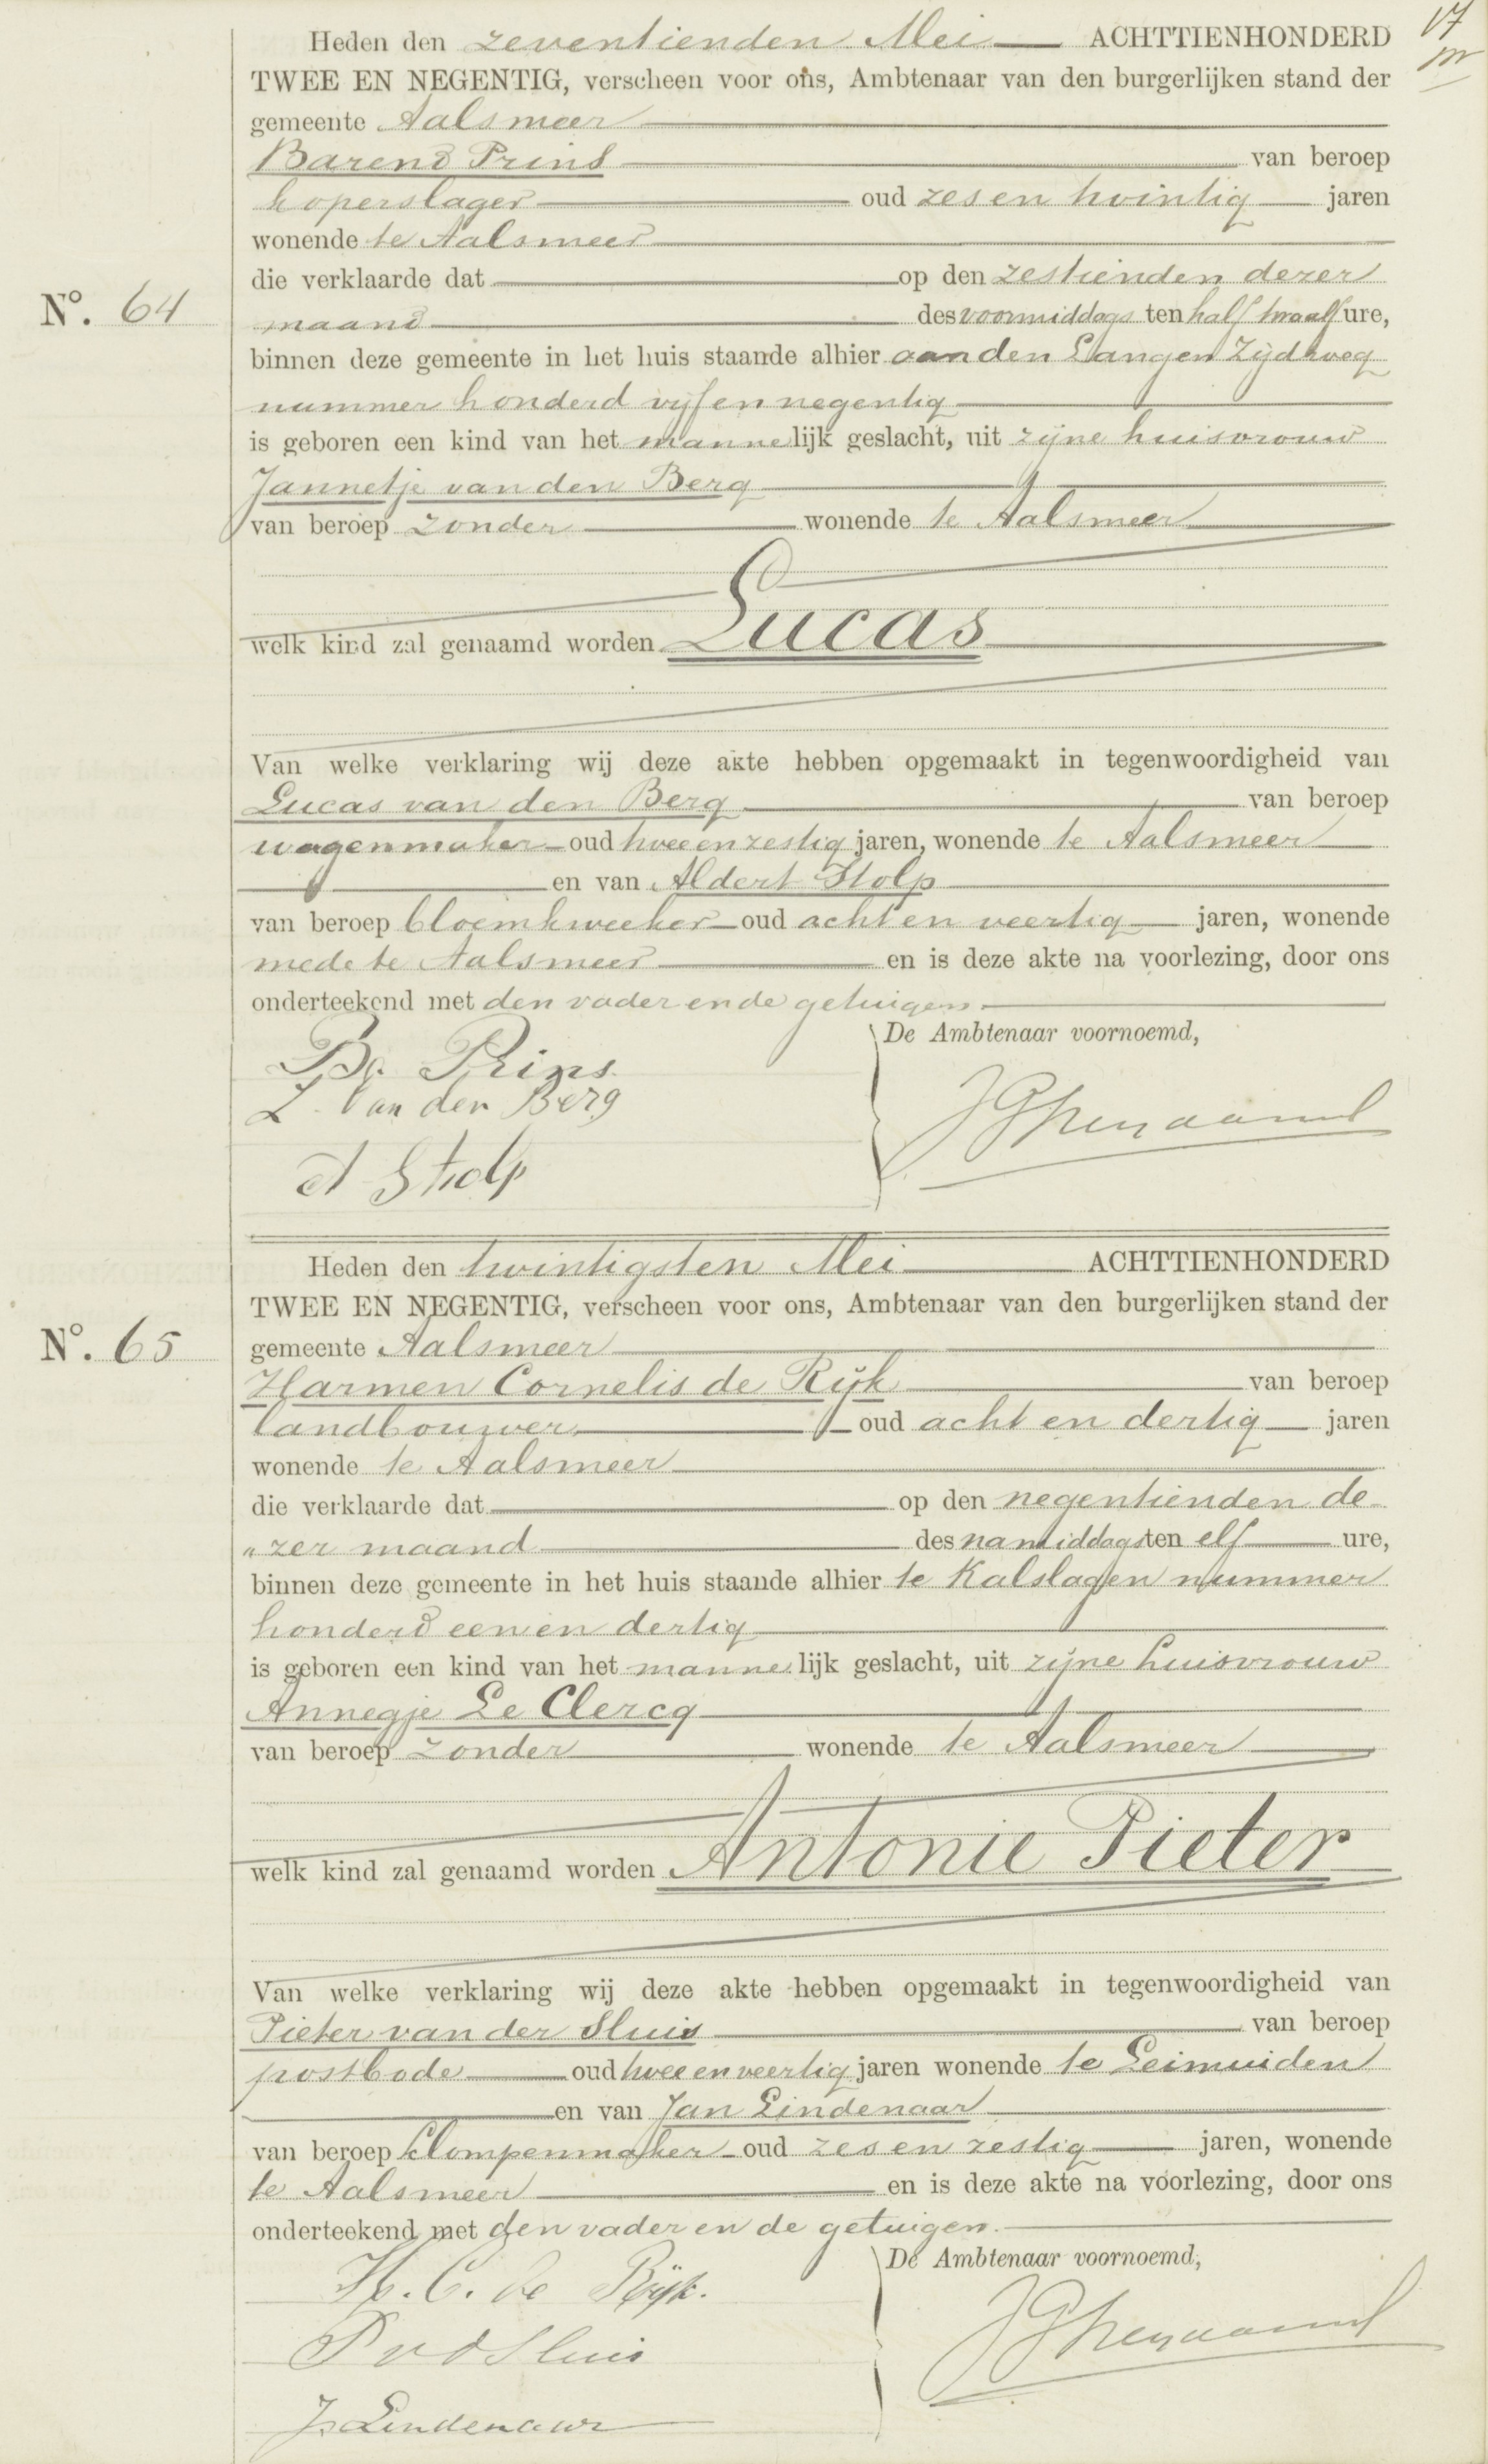 17
Heden den zeventienden Mei ACHTTIENHONDERD
TWEE EN NEGENTIG, verscheen voor ons, Ambtenaar van den burgerlijken stand der
gemeente Aalsmeer
Barend Prins van beroep
koperslager oud zes en twintig jaren
wonende te Aalsmeer
die verklaarde dat op den zestienden dezer
Nº. 64
maand des voormiddags ten half twaalf ure,
binnen deze gemeente in het huis staande alhier aan den Langen Zijdweg
nummer honderd vijf en negentig
is geboren een kind van het mannelijk geslacht, uit zijne huisvrouw
Jannetje van den Berg
van beroep zonder wonende te Aalsmeer
welk kind zal genaamd worden Lucas
Van welke verklaring wij deze akte hebben opgemaakt in tegenwoordigheid van
Lucas van den Berg van beroep
wagenmaker oud twee en zestig jaren, wonende te Aalsmeer
en van Aldert Stolp
van beroep bloemkweeker oud acht en veertig jaren, wonende
mede te Aalsmeer en is deze akte na voorlezing, door ons
onderteekend met den vader en de getuigen.
De Ambtenaar voornoemd,
Bd. Prins.
L. Van den Berg
A Stolp
Heden den twintigsten Mei ACHTTIENHONDERD
TWEE EN NEGENTIG, verscheen voor ons, Ambtenaar van den burgerlijken stand der
Nº. 65
gemeente Aalsmeer
Harmen Cornelis de Rijk van beroep
landbouwer oud acht en dertig jaren
wonende te Aalsmeer
die verklaarde dat op den negentienden de
"zer maand des namiddags ten elf ure,
binnen deze gemeente in het huis staande alhier te Kalslagen nummer
honderd een en dertig
is geboren een kind van het mannelijk geslacht, uit zijne huisvrouw
Annegje Le Clercq
van beroep zonder wonende te Aalsmeer
welk kind zal genaamd worden Antonie Pieter
Van welke verklaring wij deze akte hebben opgemaakt in tegenwoordigheid van
Pieter van der Sluis van beroep
postbode oud twee en veertig jaren wonende te Leimuiden
en van Jan Lindenaar
van beroep klompenmaker oud zes en zestig jaren, wonende
te Aalsmeer en is deze akte na voorlezing, door ons
onderteekend met den vader en de getuigen.
De Ambtenaar voornoemd,
H. C. de Rijk.
P v d Sluis
J. Lindenaar